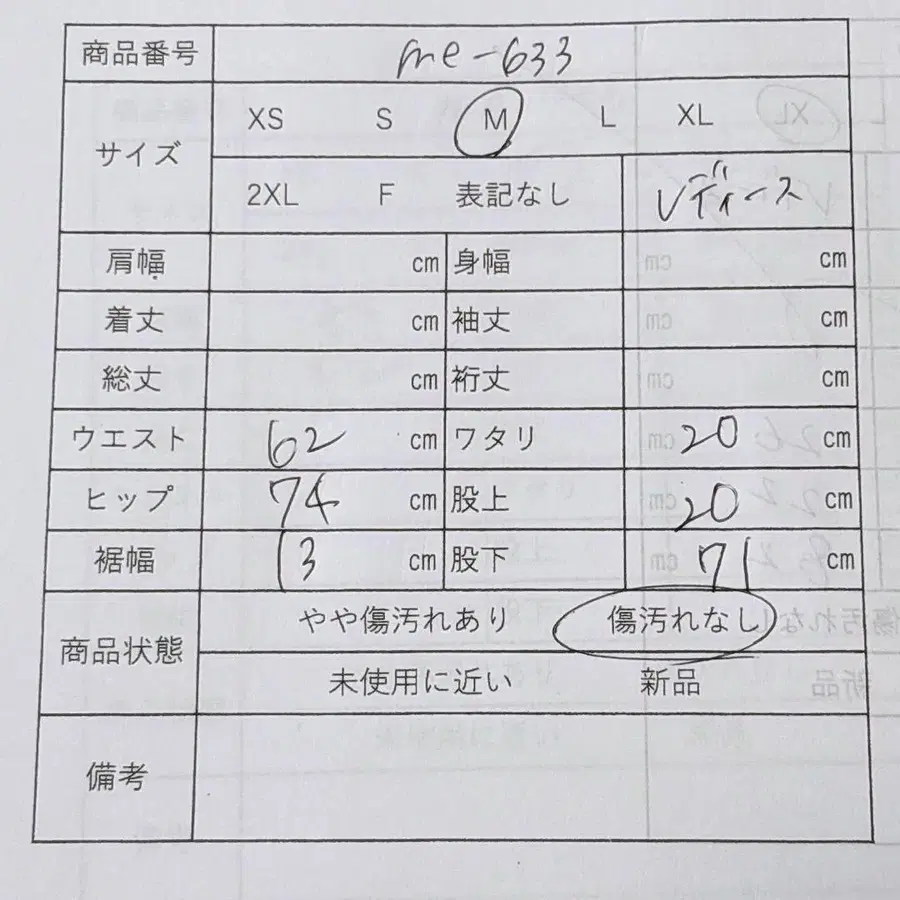 商品番号 me-633
XS S M L XL
サイズ
2XL F 表記なし レディース
肩幅 cm 身幅 cm
着丈 cm 袖丈 cm
総丈 cm 裄丈 cm
ウエスト 62 cm ワタリ 20 cm
ヒップ 74 cm 股上 20 cm
裾幅 13 cm 股下 71 cm
やや傷汚れあり 傷汚れなし
商品状態
未使用に近い 新品
備考